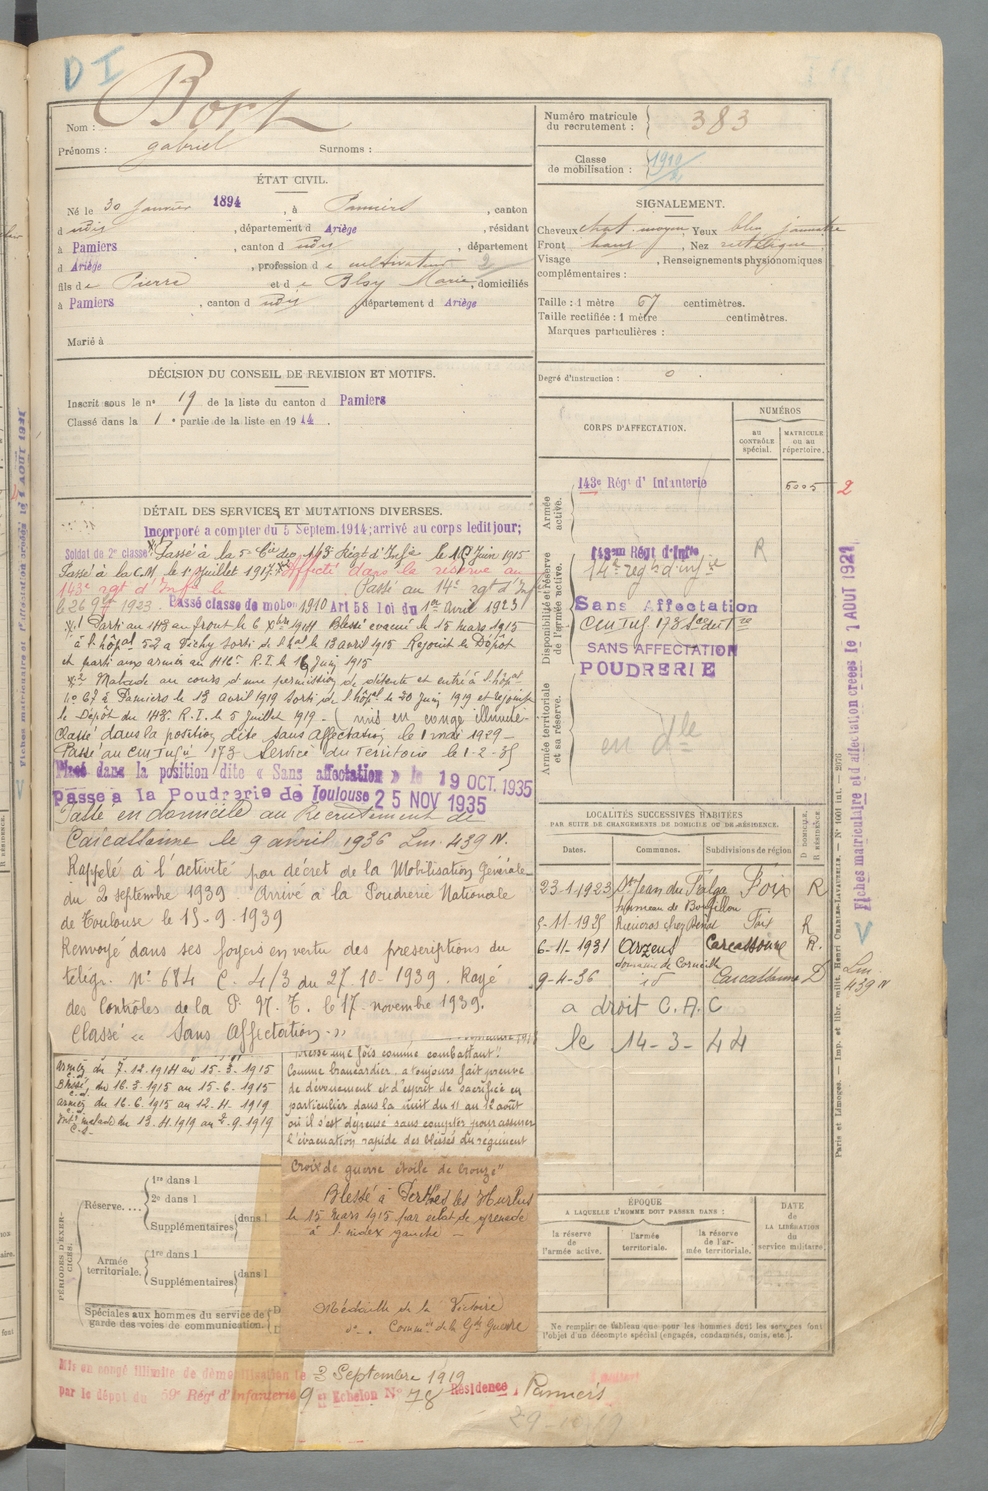 D I
Nom : Bort
Prénoms : gabriel Surnoms :
ÉTAT CIVIL.
Né le 30 Janvier 1894 , à Pamiers , canton
d udit , département d Ariège , résidant
à Pamiers , canton d udit , département
d Ariège , profession d e cultivateur 2
fils de Pierre et d e Marie , domiciliés
à Pamiers , canton d udit département d Ariège
Marié à
DÉCISION DU CONSEIL DE REVISION ET MOTIFS.
Inscrit sous le n° 19 de la liste du canton d Pamiers
Classé dans la 1 e partie de la liste en 1914 .
DÉTAIL DES SERVICES ET MUTATIONS DIVERSES.
Incorporé a compter du 5 Septem. 1914; arrivé au corps ledit jour;
Soldat de 2e classe. Passé à la 5e Cie du 143 Régt d'Infie le 16 Juin 1915
Passé à la C.M. le 1er Juillet 1917. Affecté dans la réserve au
143e rgt d'Infie le Passé au 14e rgt d'Inf
le 26 1923. Passé classe de mobon 1910 Art 58 loi du 1er Avril 1923
Parti au front le 6 Xbre 1914 Blessé évacué le 15 mars 1915
à l'hôpal 52 a Vichy sorti de l'hal le 13 avril 1915 Rejoint le Dépôt
et parti aux armées au R.I. le 16 Juin 1915
Malade au cours d'une permission de détente et entré à l'hôpal
n° 67 à Pamiers le 13 avril 1919 sorti de l'hôpal le 20 Juin 1919 et rejoint
le Dépôt du R.I. le 5 Juillet 1919 - ( mis en congé illimité
Classé dans la position dite sans affectation le 1 mai 1929 -
Passé au 173 Service du Territoire le 1-2-35
Placé dans la position dite « Sans affectation » le 19 OCT. 1935
Passé a la Poudrerie de Toulouse 25 NOV 1935
Passé en domicile au Recrutement de
Carcassonne le 9 avril 1936 Lm. 439 N.
Rappelé à l'activité par décret de la Mobilisation Générale
du 2 septembre 1939 Arrivé à la Poudrerie Nationale
de Toulouse le 15-9-1939
Renvoyé dans ses foyers en vertu des prescriptions du
télégr. N° 684 C. 4/3 du 27-10-1939. Rayé
des Contrôles de la P. N. T. le 17 novembre 1939.
Classé « Sans Affectation. »
Armées du 7.12.1914 au 15-3-1915
Blessé, du 16-3-1915 au 15-6-1915
Armées du 16-6-1915 au 12-4-1919
malade du 13-4-1919 au 2-9-1919
blessé une fois comme combattant".
Comme brancardier, a toujours fait preuve
de dévouement et d'esprit de sacrifice en
particulier dans la nuit du 11 au 12 août
où il s'est dépensé sans compter pour assurer
l'évacuation rapide des blessés du régiment
Croix de guerre étoile de bronze"
Blessé à Perthes les Hurlus
le 15 mars 1915 par éclat de grenade
à l'index gauche -
Médaille de la Victoire
do . Comme de la Gde Guerre
PÉRIODES D'EXERCICES.
Réserve....
1re dans l
2e dans l
Supplémentaires dans l
Armée territoriale.
1re dans l
Supplémentaires dans l
Spéciales aux hommes du service de
garde des voies de communication.
Mis en congé illimité de démobilisation le 3 Septembre 1919
par le dépôt du 59e Régt d'Infanterie 9 e Echelon N° 78 Résidence , Pamiers
Numéro matricule
du recrutement : 383
Classe
de mobilisation : 1910
SIGNALEMENT.
Cheveux chat. moyen Yeux bleu jaunatre
Front haut , Nez rectiligne
Visage , Renseignements physionomiques
complémentaires :
Taille : 1 mètre 67 centimètres.
Taille rectifiée : 1 mètre centimètres.
Marques particulières :
Degré d'instruction : 0
CORPS D'AFFECTATION.
NUMÉROS
AU CONTRÔLE spécial.
MATRICULE OU AU répertoire.
Armée active.
143e Régt d' Infanterie 6005 2
Disponibilité et réserve de l'armée active.
143eme Régt d'Infie R
14e regt d'infie
Sans Affectation
173
SANS AFFECTATION
POUDRERIE
Armée territoriale et sa réserve.
en dle
LOCALITÉS SUCCESSIVES HABITÉES
PAR SUITE DE CHANGEMENTS DE DOMICILE OU DE RÉSIDENCE.
Dates. Communes. Subdivisions de région D DOMICILE. R RÉSIDENCE
23-1-1923 St Jean du Falga Foix R
hameau de
Foix R
6-11-1931 Orzens Carcassonne R.
domaine de
9-4-36 id Carcassonne D Lm. 439 N
a droit C.A.C
le 14-3-44
ÉPOQUE
A LAQUELLE L'HOMME DOIT PASSER DANS :
la réserve de l'armée active.
l'armée territoriale.
la réserve de l'armée territoriale.
DATE de LA LIBÉRATION du service militaire.
Ne remplir ce tableau que pour les hommes dont les services font
l'objet d'un décompte spécial (engagés, condamnés, omis, etc.).
Fiches matriculaire et d'affectation créées le 1 AOUT 1921
Paris et Limoges. — Imp. et libr. milit. Henri CHARLES-LAVAUZELLE.